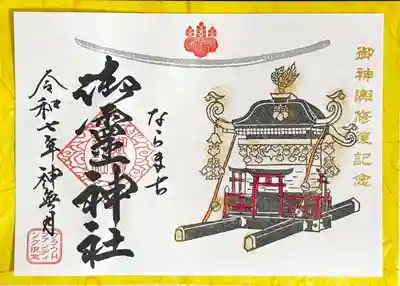 御神輿修復記念
ならまち
御霊神社
令和七年神無月
クラウド
ファンディ
ング限定